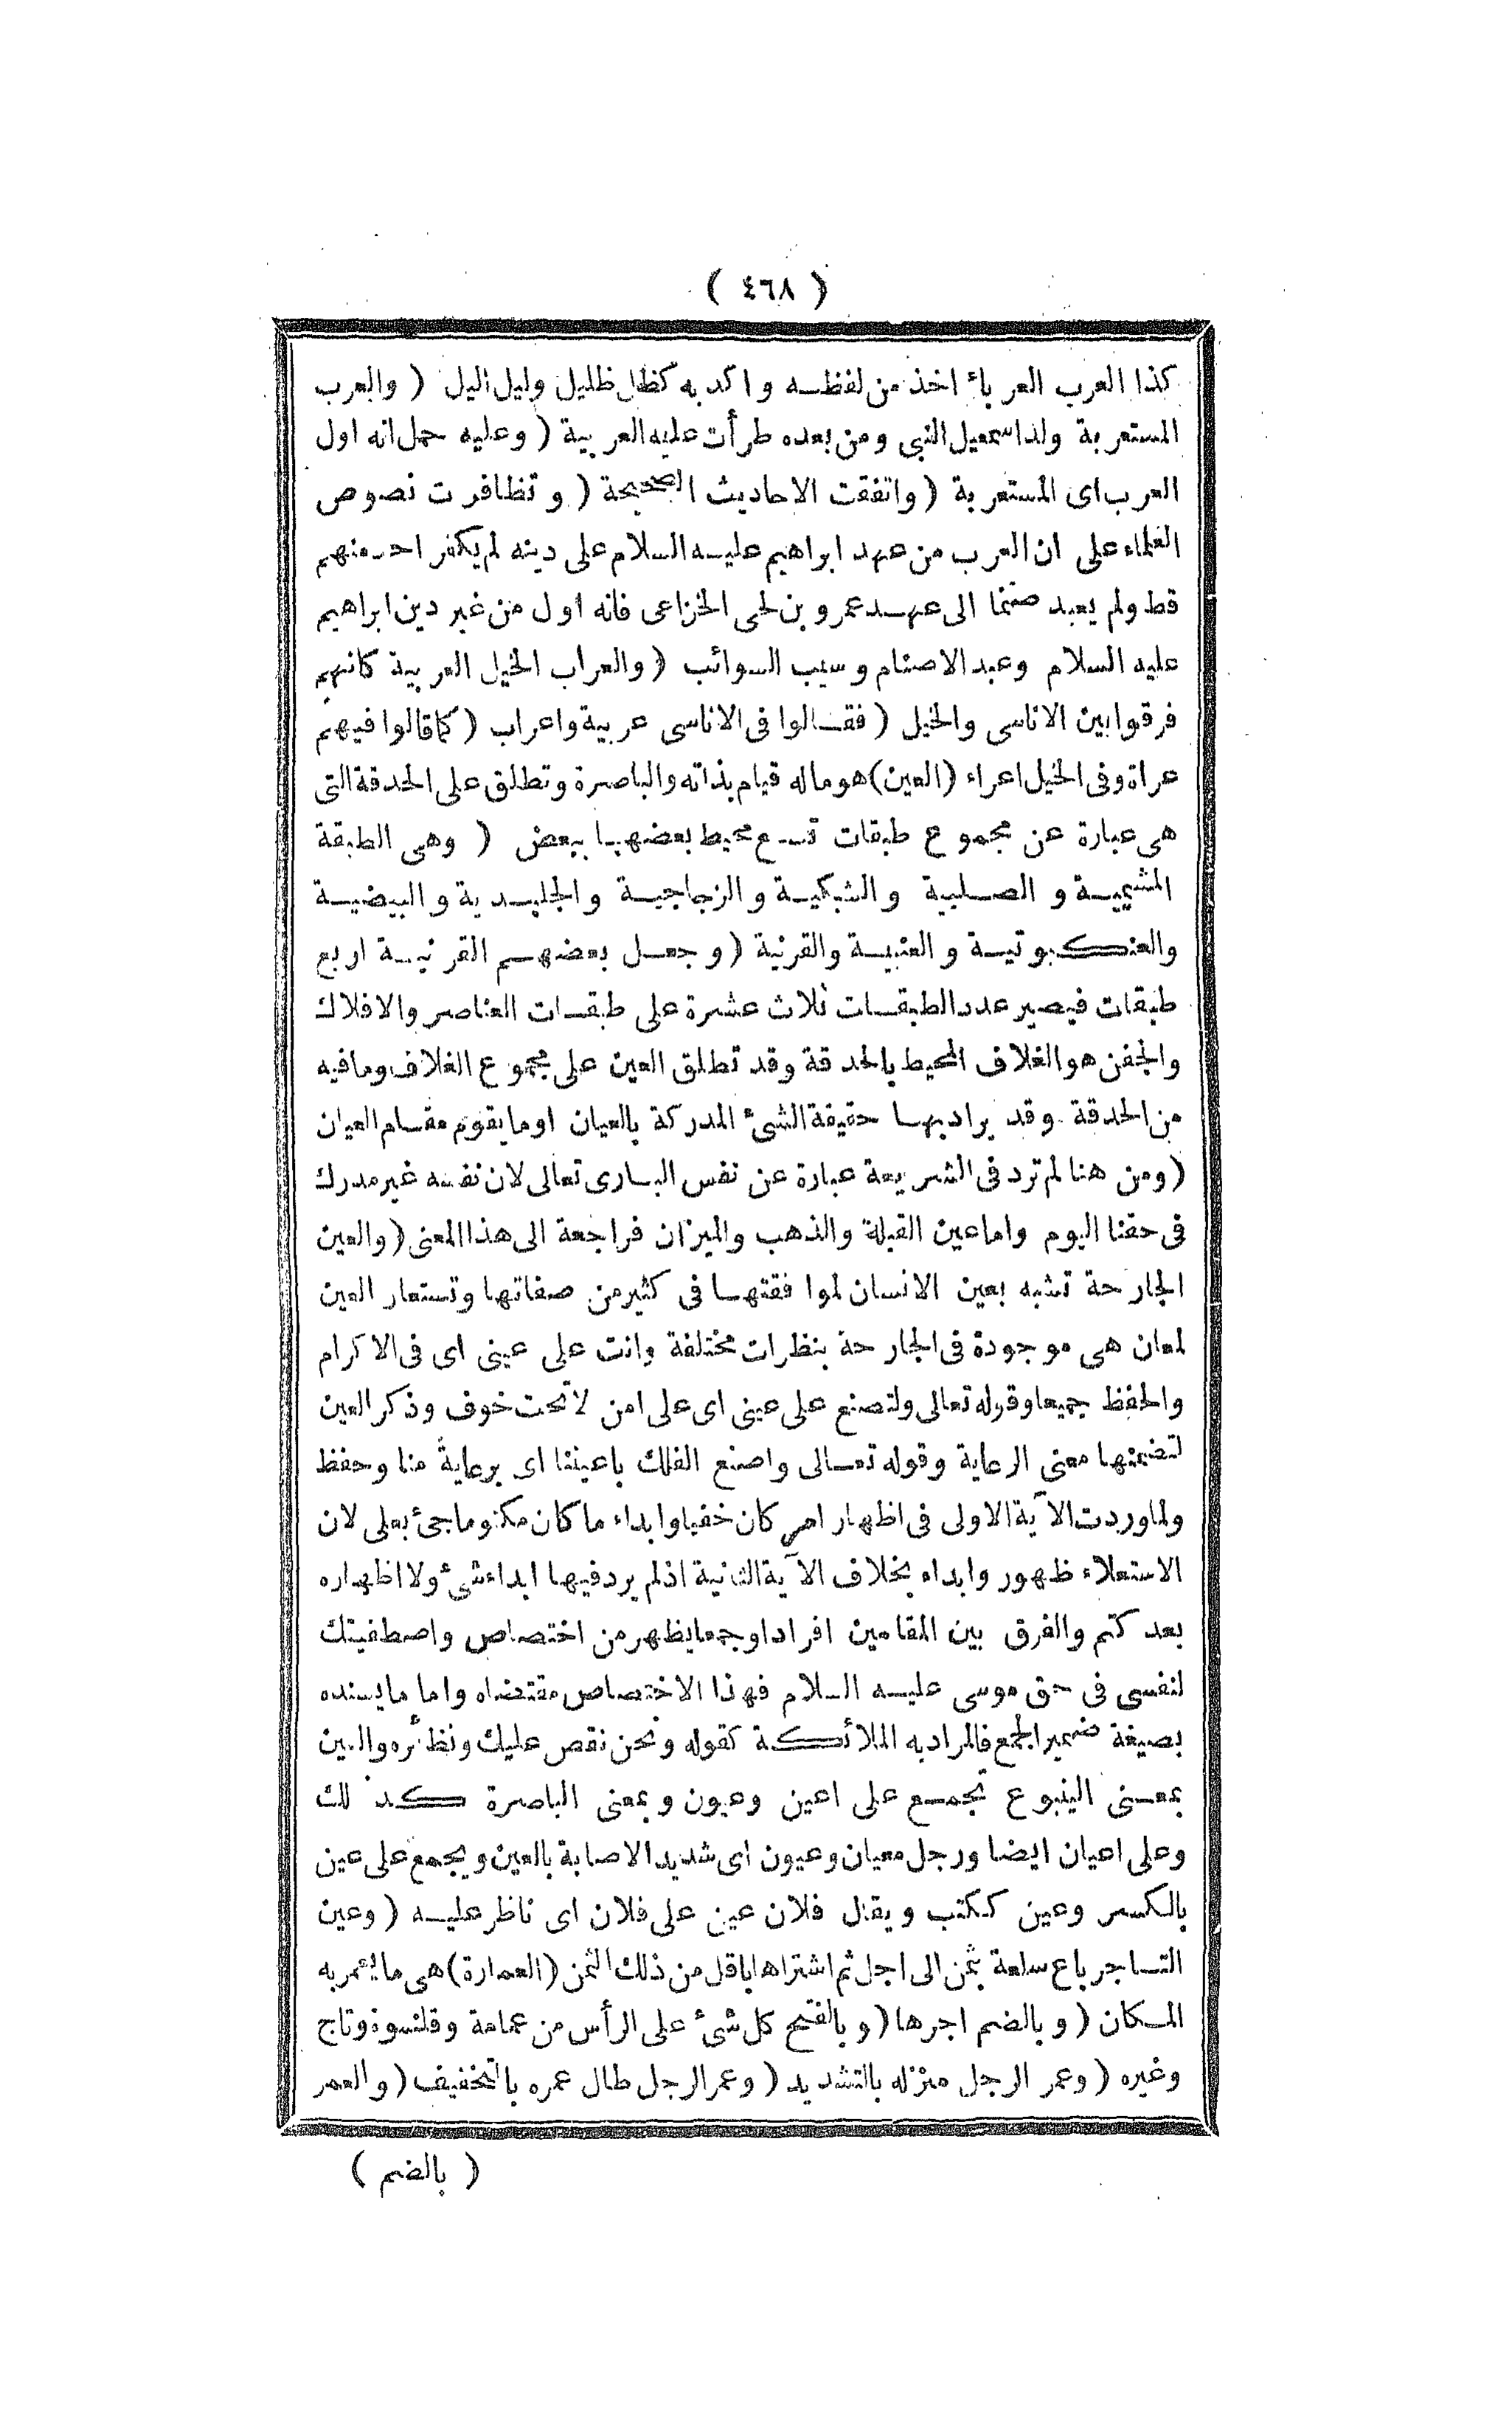 ( ٤٦٨ )
كذا العرب العرباء اخذ من لفظه واكد به كظل ظليل وليل اليل ( والعرب
المستعربة ولد اسمعيل النبي ومن بعده طرأت عليه العربية ( وعليه حمل انه اول
العرب اى المستعربة ( واتفقت الاحاديث الصحيحة ( وتظافرت نصوص
العلماء على ان العرب من عهد ابراهيم عليه السلام على دينه لم يكفر احد منهم
قط ولم يعبد صنما الى عهد عمرو بن لحى الخزاعى فانه اول من غير دين ابراهيم
عليه السلام وعبد الاصنام وسيب السوائب ( والعراب الخيل العربية كانهم
فرقوا بين الاناسى والخيل ( فقالوا فى الاناسى عربية واعراب ( كما قالوا فيهم
عراة وفى الخيل اعراء (العين) هو ماله قيام بذاته والباصرة وتطلق على الحدقة التى
هى عبارة عن مجموع طبقات تسع محيط بعضها ببعض ( وهى الطبقة
المشيمية و الصلبية والشبكية والزجاجية والجليدية والبيضية
والعنكبوتية والعنبية والقرنية ( وجعل بعضهم القرنية اربع
طبقات فيصير عدد الطبقات ثلاث عشرة على طبقات العناصر والافلاك
والجفن هو الغلاف المحيط بالحدقة وقد تطلق العين على مجموع الغلاف وما فيه
من الحدقة وقد يراد بها حقيقة الشئ المدركة بالعيان او ما يقوم مقام العيان
( ومن هنا لم ترد فى الشريعة عبارة عن نفس البارى تعالى لان نفسه غير مدرك
فى حقنا اليوم واما عين القبلة والذهب والميزان فراجعة الى هذا المعنى ( والعين
الجارحة تشبه بعين الانسان لموافقتها فى كثير من صفاتها وتستعار العين
لمعان هى موجودة فى الجارحة بنظرات مختلفة وانت على عينى اى فى الاكرام
والحفظ جميعا وقوله تعالى ولتصنع على عينى اى على امن لا تحت خوف وذكر العين
لتضمنها معنى الرعاية وقوله تعالى واصنع الفلك باعيننا اى برعاية منا وحفظ
ولما وردت الآية الاولى فى اظهار امر كان خفيا وابداء ما كان مكتوما جئ بعلى لان
الاستعلاء ظهور وابداء بخلاف الآية الثانية اذ لم يرد فيها ابداء شئ ولا اظهاره
بعد كتم والفرق بين المقامين افرادا وجمعا يظهر من اختصاص واصطفيتك
لنفسى فى حق موسى عليه السلام فهذا الاختصاص مقتضاه واما ما يسنده
بصيغة ضمير الجمع فالمراد به الملائكة كقوله ونحن نقص عليك ونظائره والعين
بمعنى الينبوع تجمع على اعين وعيون وبمعنى الباصرة كذلك
وعلى اعيان ايضا ورجل معيان وعيون اى شديد الاصابة بالعين ويجمع على عين
بالكسر وعين ككتب ويقال فلان عين على فلان اى ناظر عليه ( وعين
التاجر باع سلعة بثمن الى اجل ثم اشتراها باقل من ذلك الثمن (العمارة) هى ما يعمر به
المكان ( وبالضم اجرها ( وبالفتح كل شئ على الرأس من عمامة وقلنسوة وتاج
وغيره ( وعمر الرجل منزله بالتشديد ( وعمر الرجل طال عمره بالتخفيف ( والعمر
( بالضم )